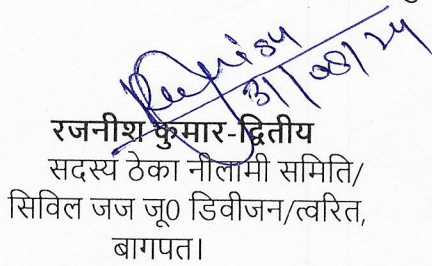 31/08/24
रजनीश कुमार-द्वितीय
सदस्य ठेका नीलामी समिति/
सिविल जज जू0 डिवीजन/त्वरित,
बागपत।